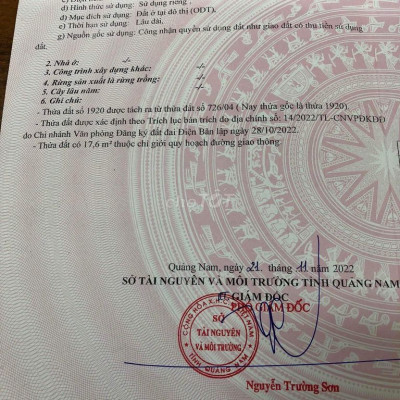 c) Hình thức sử dụng: Sử dụng riêng ;
d) Mục đích sử dụng: Đất ở tại đô thị (ODT),
e) Thời hạn sử dụng: Lâu dài,
g) Nguồn gốc sử dụng: Công nhận quyền sử dụng đất như giao đất có thu tiền sử dụng
đất.
2. Nhà ở: -/-
3. Công trình xây dựng khác: -/-
4. Rừng sản xuất là rừng trồng: -/-
5. Cây lâu năm: -/-
6. Ghi chú:
- Thửa đất số 1920 được tách ra từ thửa đất số 726/04 ( Nay thửa gốc là thửa 1920).
- Thửa đất được xác định theo Trích lục bản trích đo địa chính số: 14/2022/TL-CNVPĐKĐĐ
do Chi nhánh Văn phòng Đăng ký đất đai Điện Bàn lập ngày 28/10/2022.
- Thửa đất có 17,6 m² thuộc chỉ giới quy hoạch đường giao thông.
chợTỐT
Quảng Nam, ngày 21 tháng 11 năm 2022
SỞ TÀI NGUYÊN VÀ MÔI TRƯỜNG TỈNH QUẢNG NAM
KT.GIÁM ĐỐC
PHÓ GIÁM ĐỐC
CỘNG HÒA X.H.C.N VIỆT NAM
SỞ
TÀI NGUYÊN
VÀ MÔI TRƯỜNG
TỈNH QUẢNG NAM
Nguyễn Trường Sơn